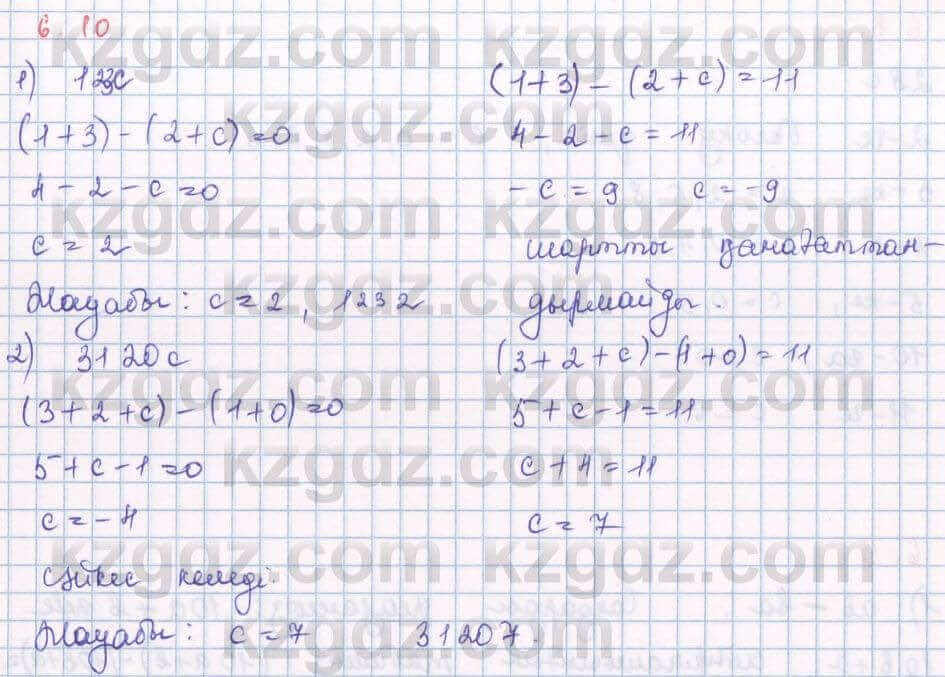 6.10
1) 123c
(1+3)-(2+c)=0
4-2-c=0
c=2
Жауабы: c=2, 1232
(1+3)-(2+c)=11
4-2-c=11
-c=9 c=-9
шартты қанағаттан-
дырмайды.
2) 3120c
(3+2+c)-(1+0)=0
5+c-1=0
c=-4
сәйкес келеді.
Жауабы: c=7 31207.
(3+2+c)-(1+0)=11
5+c-1=11
c+4=11
c=7
kzgdz.com